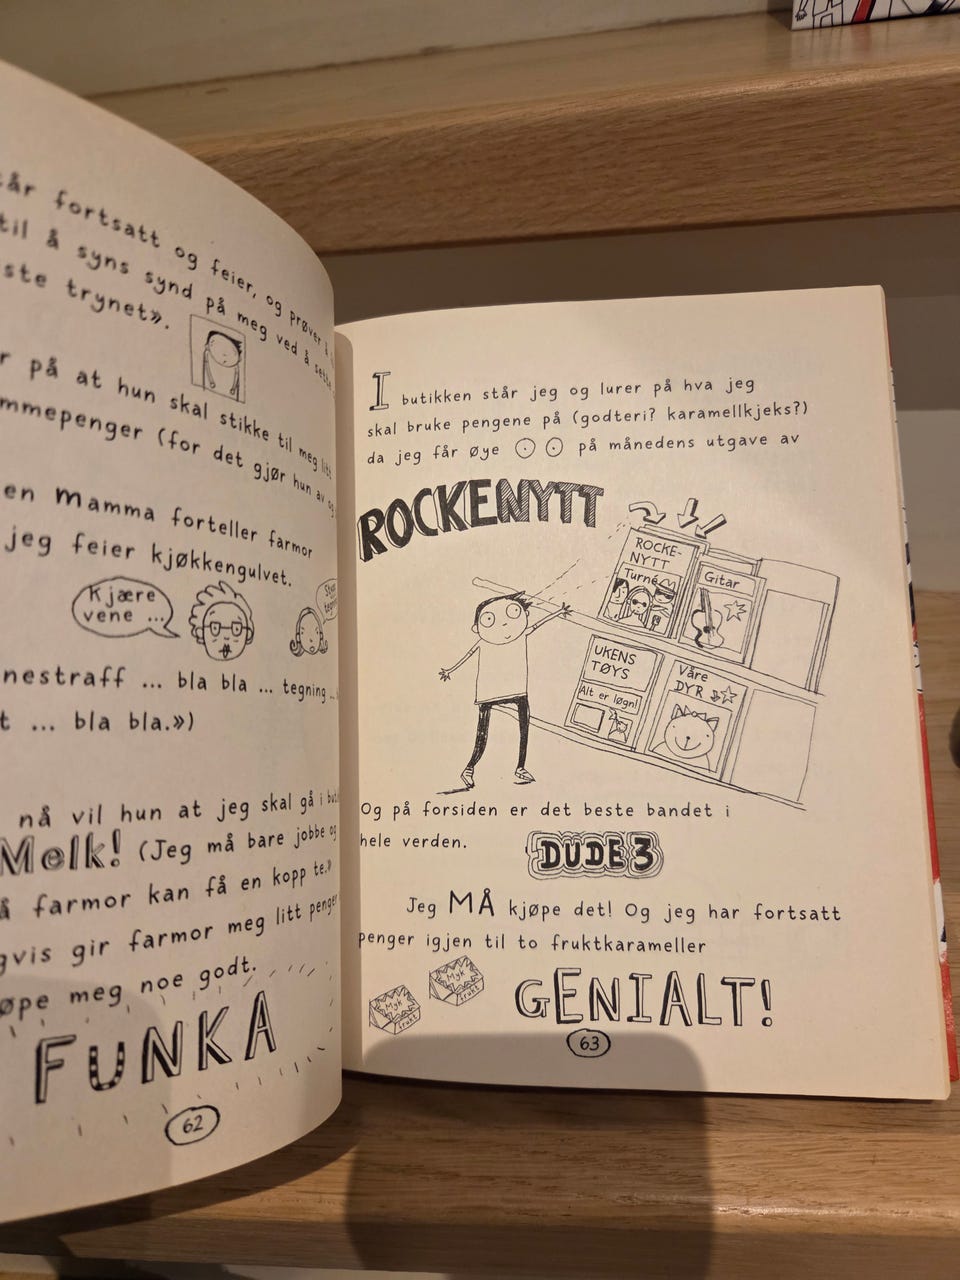 år fortsatt og feier, og prøver å
til å syns synd på meg ved å sette
ste trynet».
r på at hun skal stikke til meg litt
mmepenger (for det gjør hun av og
en Mamma forteller farmor
jeg feier kjøkkengulvet.
Kjære
vene ...
nestraff ... bla bla ... tegning ...
t ... bla bla.»)
nå vil hun at jeg skal gå i
Melk! (Jeg må bare jobbe og
å farmor kan få en kopp te.»
gvis gir farmor meg litt penger
øpe meg noe godt.
FUNKA
62
I butikken står jeg og lurer på hva jeg
skal bruke pengene på (godteri? karamellkjeks?)
da jeg får øye på månedens utgave av
ROCKENYTT
ROCKE-
NYTT
Turné
Gitar
UKENS
TØYS
Alt er løgn!
Våre
DYR
Og på forsiden er det beste bandet i
hele verden.
DUDE 3
Jeg MÅ kjøpe det! Og jeg har fortsatt
penger igjen til to fruktkarameller
Myk
frukt
Myk
frukt
GENIALT!
63